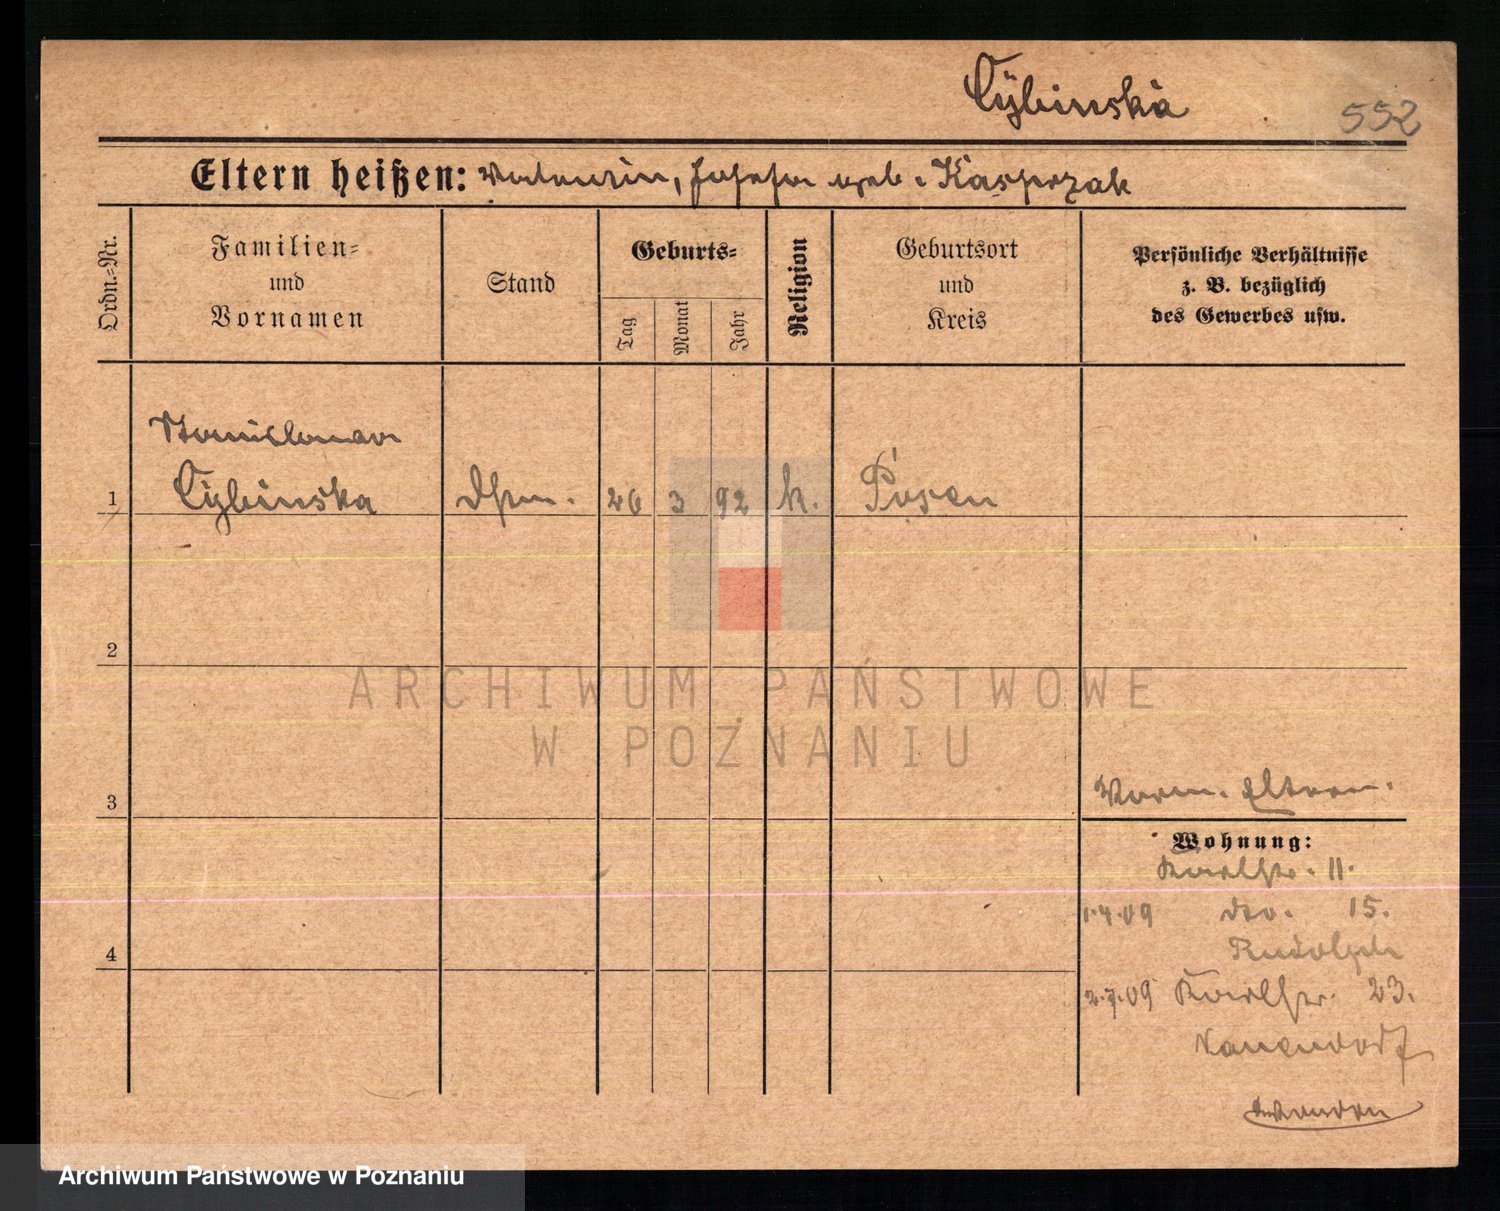 Cybinska
552
Eltern heißen: Valentin, Josefa geb. Kasprzak
Ordn.=Nr.
Familien=
und
Vornamen
Stand
Geburts=
Tag
Monat
Jahr
Religion
Geburtsort
und
Kreis
Persönliche Verhältnisse
z. B. bezüglich
des Gewerbes usw.
Stanislawa
1 Cybinska 26 3 92 k. Posen
2
ARCHIWUM PAŃSTWOWE
W POZNANIU
3
Eltern.
Wohnung:
Karlstr. 11.
1.4.09 dto. 15.
Rudolph
2.7.09 Karlstr. 23.
4
Archiwum Państwowe w Poznaniu